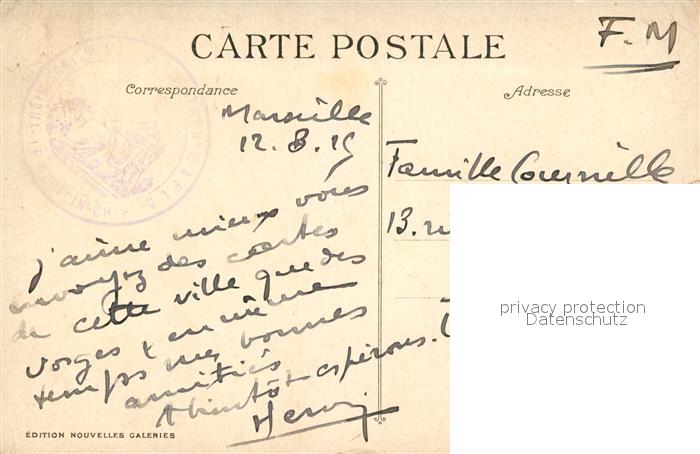 CARTE POSTALE
F.M
Correspondance
Adresse
Marseille
12.8.15
j'aime mieux vous
envoyez des cartes
de cette ville que des
Vosges & en même
temps mes bonnes
amitiés
A bientôt espérons.
Henri
Famille
13. ru
privacy protection
Datenschutz
ÉDITION NOUVELLES GALERIES